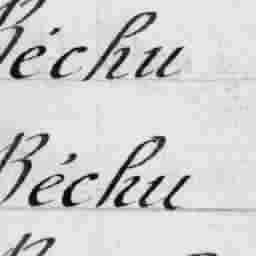 Béchu
Béchu